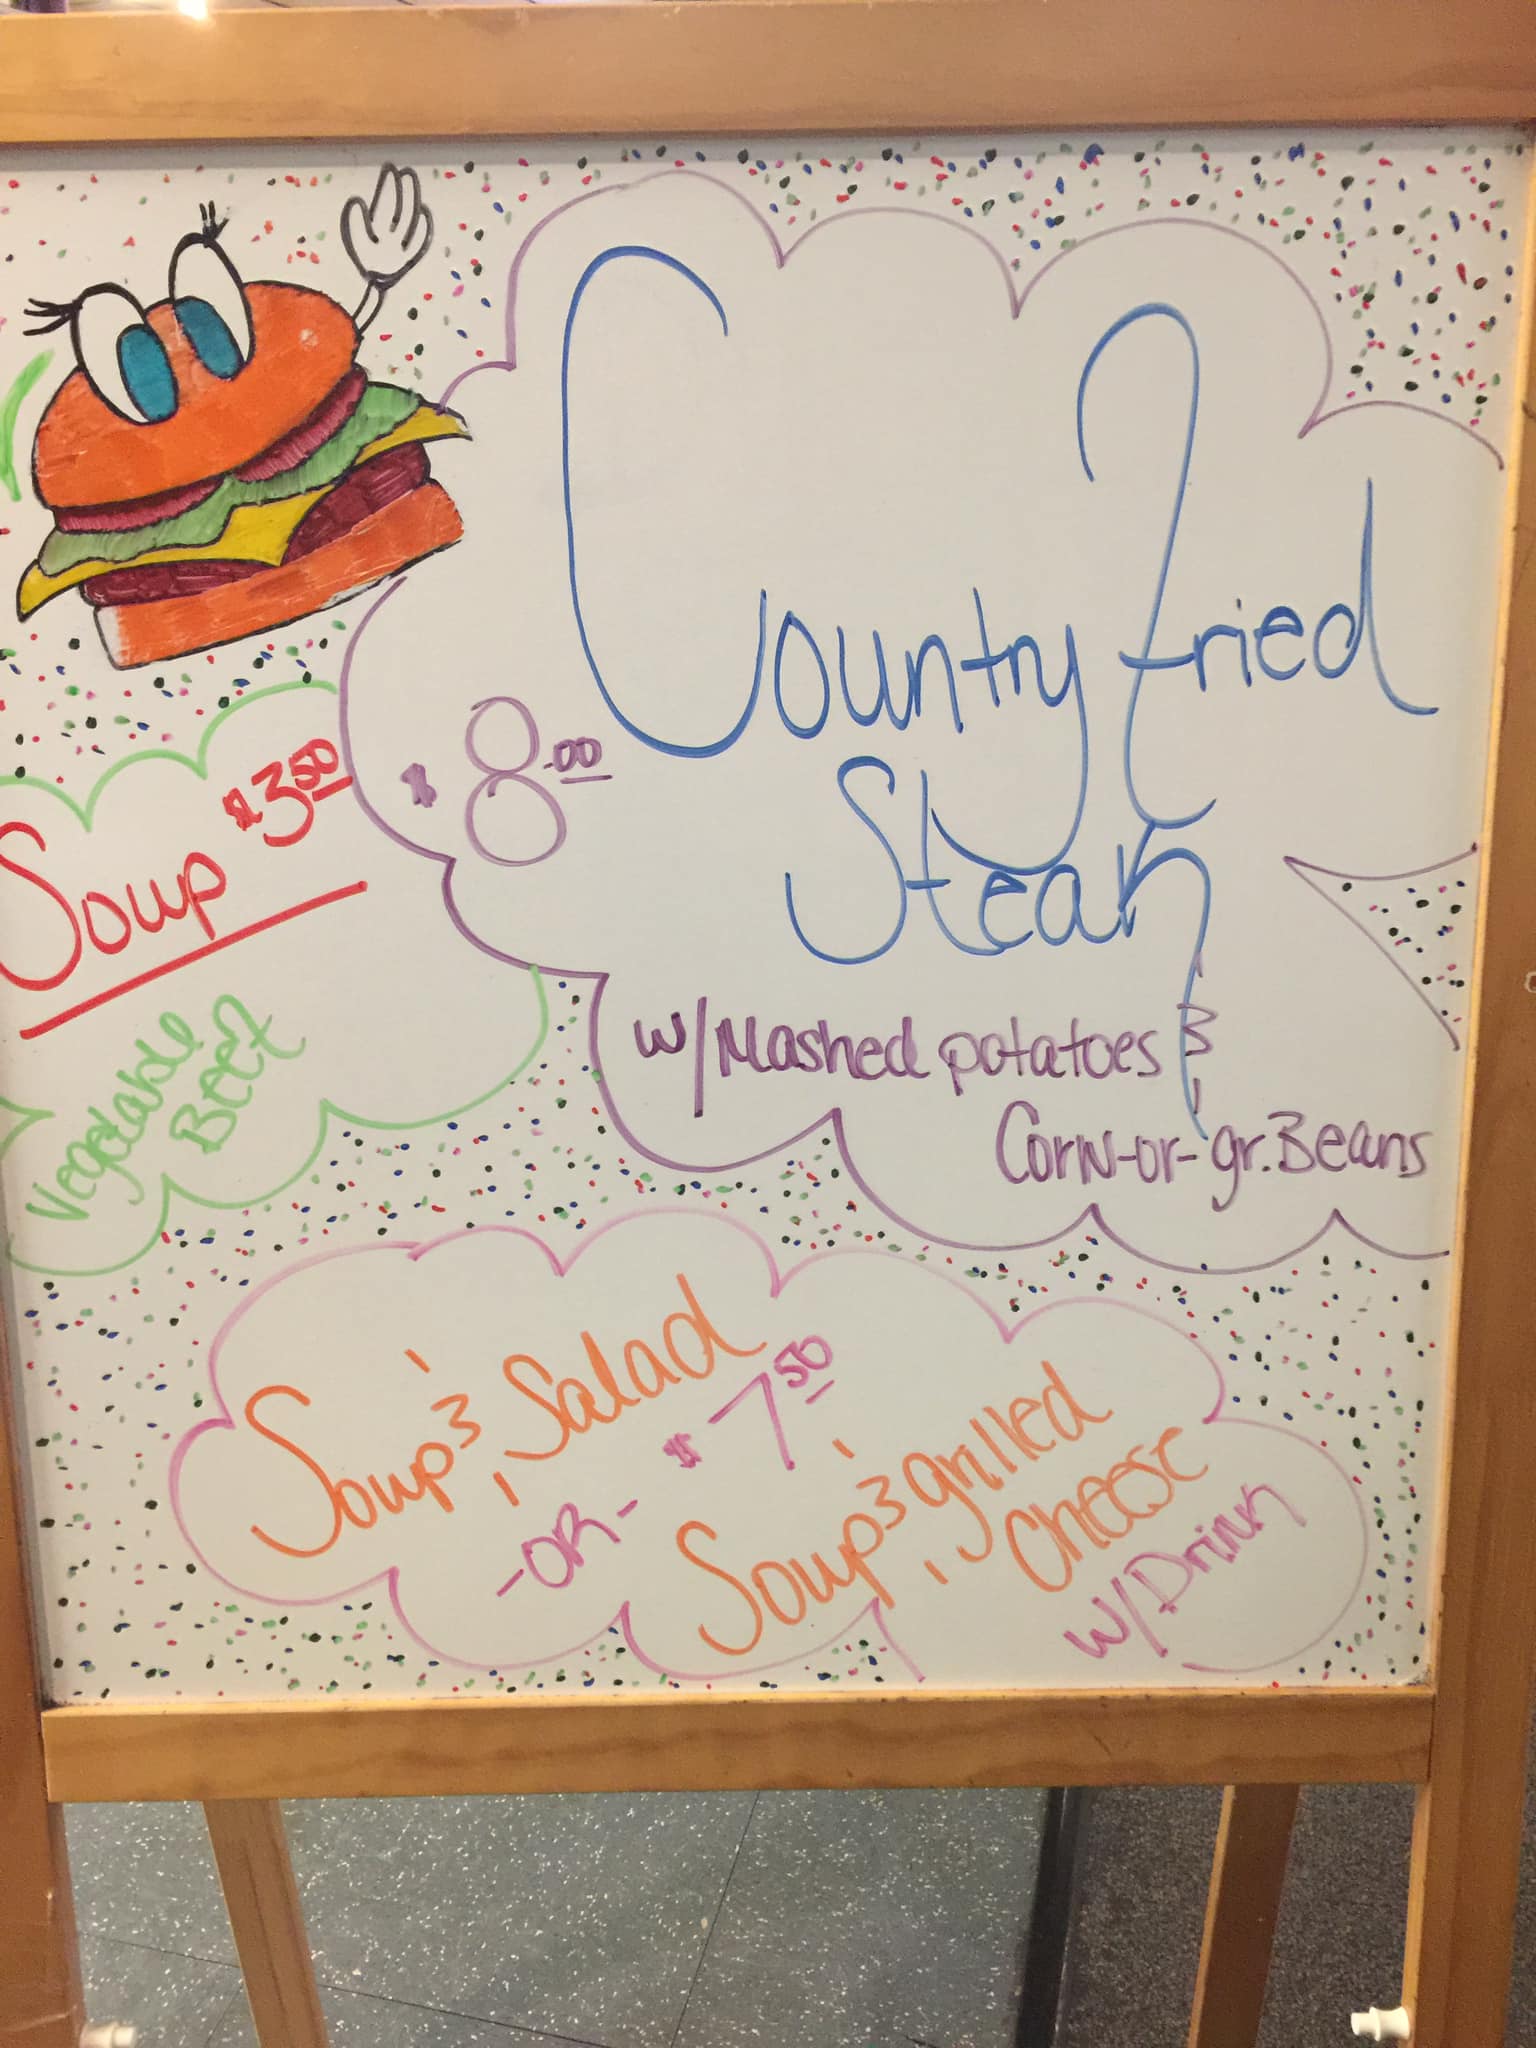 Country Fried
Steak
$8.00
w/Mashed potatoes &
Corn-or-gr.Beans
Soup $3.50
Vegetable
Beef
Soup & Salad
-OR- $7.50
Soup & grilled
Cheese
w/Drink